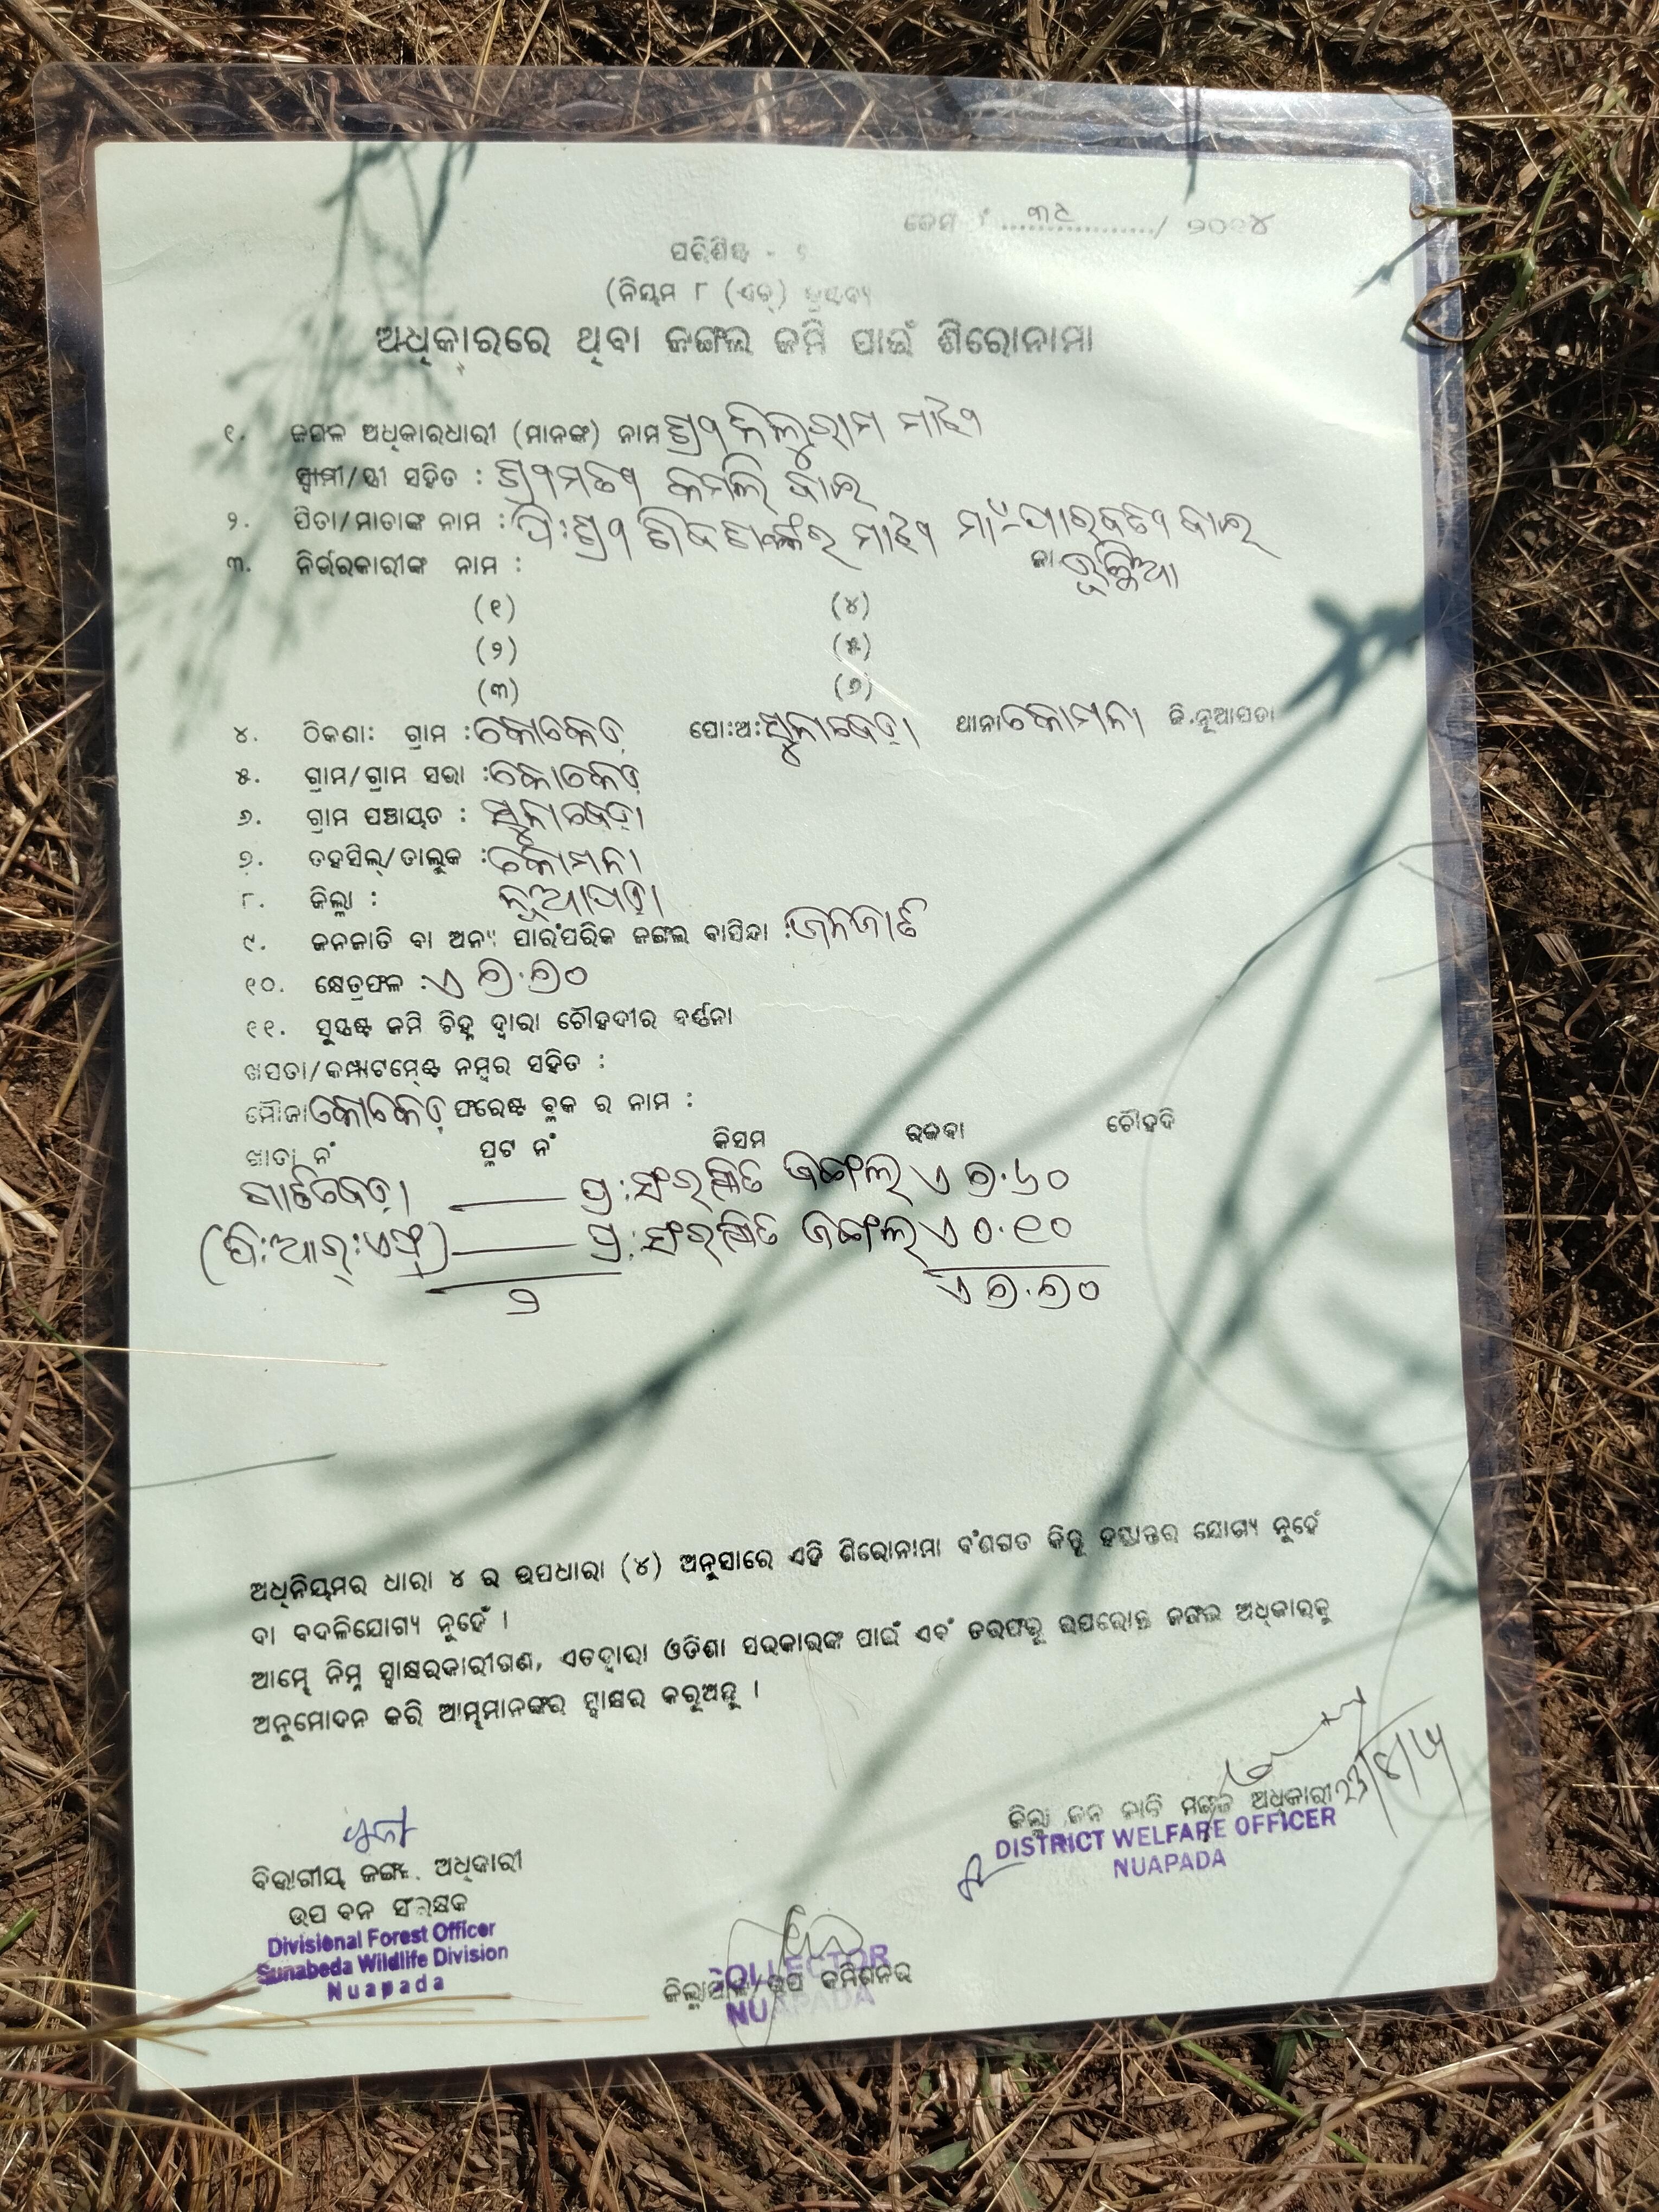 କେସ ନଂ ..୩୯............../ ୨୦୧୪
ପରିଶିଷ୍ଟ - ୨
(ନିୟମ ୮ (ଏଚ୍) ଦ୍ରଷ୍ଟବ୍ୟ
ଅଧିକାରରେ ଥିବା ଜଙ୍ଗଲ ଜମି ପାଇଁ ଶିରୋନାମା
୧. ଜଙ୍ଗଲ ଅଧିକାରଧାରୀ (ମାନଙ୍କ) ନାମ ଶ୍ରୀ ମାଝୀ
ସ୍ୱାମୀ/ସ୍ତ୍ରୀ ସହିତ : ଶ୍ରୀମତୀ କମଲି ବାଇ
୨. ପିତା/ମାତାଙ୍କ ନାମ : ପି:ଶ୍ରୀ ଶିବଶଙ୍କର ମାଝୀ ମା:ପାରବତୀ ବାଇ
୩. ନିର୍ଭରକାରୀଙ୍କ ନାମ : ଜା ଭୁଞ୍ଜିଆ
(୧) (୪)
(୨) (୫)
(୩) (୬)
୪. ଠିକଣା: ଗ୍ରାମ : କୋକେଡ଼ ପୋ:ଅ: ସୁନାବେଡ଼ା ଥାନା କୋମନା ଜି.ନୂଆପଡା
୫. ଗ୍ରାମ/ଗ୍ରାମ ସଭା : କୋକେଡ଼
୬. ଗ୍ରାମ ପଞ୍ଚାୟତ : ସୁନାବେଡ଼ା
୭. ତହସିଲ୍/ତାଲୁକ : କୋମନା
୮. ଜିଲ୍ଲା : ନୂଆପଡ଼ା
୯. ଜନଜାତି ବା ଅନ୍ୟ ପାରଂପରିକ ଜଙ୍ଗଲ ବାସିନ୍ଦା : ଜନଜାତି
୧୦. କ୍ଷେତ୍ରଫଳ : ଏ ୭.୭୦
୧୧. ସୁସ୍ପଷ୍ଟ ଜମି ଚିହ୍ନ ଦ୍ୱାରା ଚୌହଦୀର ବର୍ଣ୍ଣନା
ଖସଡା/କମ୍ପାଟମେଣ୍ଟ ନମ୍ବର ସହିତ :
ମୌଜା କୋକେଡ଼ ଫରେଷ୍ଟ ବ୍ଲକ ର ନାମ :
ଖାତା ନଂ ପ୍ଲଟ ନଂ କିସମ ରକବା ଚୌହଦି
ପାଟିବେଡ଼ା ପ୍ର:ସଂରକ୍ଷିତ ଜଙ୍ଗଲ ଏ ୭.୬୦
(ପି:ଆର୍:ଏଫ୍) ପ୍ର:ସଂରକ୍ଷିତ ଜଙ୍ଗଲ ଏ ୦.୧୦
୨ ଏ ୭.୭୦
ଅଧିନିୟମର ଧାରା ୪ ର ଉପଧାରା (୪) ଅନୁସାରେ ଏହି ଶିରୋନାମା ବଂଶଗତ କିନ୍ତୁ ହସ୍ତାନ୍ତର ଯୋଗ୍ୟ ନୁହେଁ
ବା ବଦଳିଯୋଗ୍ୟ ନୁହେଁ ।
ଆମ୍ଭେ ନିମ୍ନ ସ୍ୱାକ୍ଷରକାରୀଗଣ, ଏତଦ୍ୱାରା ଓଡିଶା ସରକାରଙ୍କ ପାଇଁ ଏବଂ ତରଫରୁ ଉପରୋକ୍ତ ଜଙ୍ଗଲ ଅଧିକାରକୁ
ଅନୁମୋଦନ କରି ଆମ୍ଭମାନଙ୍କର ସ୍ୱାକ୍ଷର କରୁଅଛୁ ।
ଜିଲ୍ଲା ଜନ ଜାତି ମଙ୍ଗଳ ଅଧିକାରୀ
DISTRICT WELFARE OFFICER
NUAPADA
ବିଭାଗୀୟ ଜଙ୍ଗଲ ଅଧିକାରୀ
ଉପ ବନ ସଂରକ୍ଷକ
Divisional Forest Officer
Sunabeda Wildlife Division
Nuapada
COLLECTOR
ଜିଲ୍ଲାପାଳ/ଉପ କମିଶନର
NUAPADA